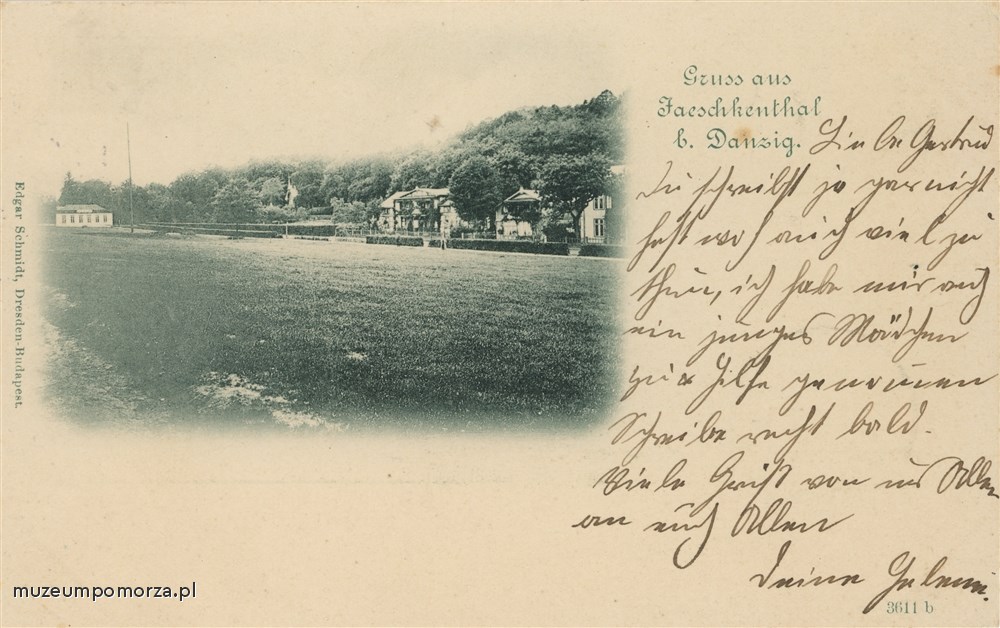 Gruss aus
Jaeschkenthal
b. Danzig.
Liebe Gertrud
Du schreibst ja gar nicht
hast woh auch viel zu
thun, ich habe mir auch
ein junges Mädchen
zur Hilfe genomen
Schreibe recht bald.
Viele Grüß von uns Allen
an euch Allen
Deine Helene.
3611 b
Edgar Schmidt, Dresden-Budapest.
muzeumpomorza.pl